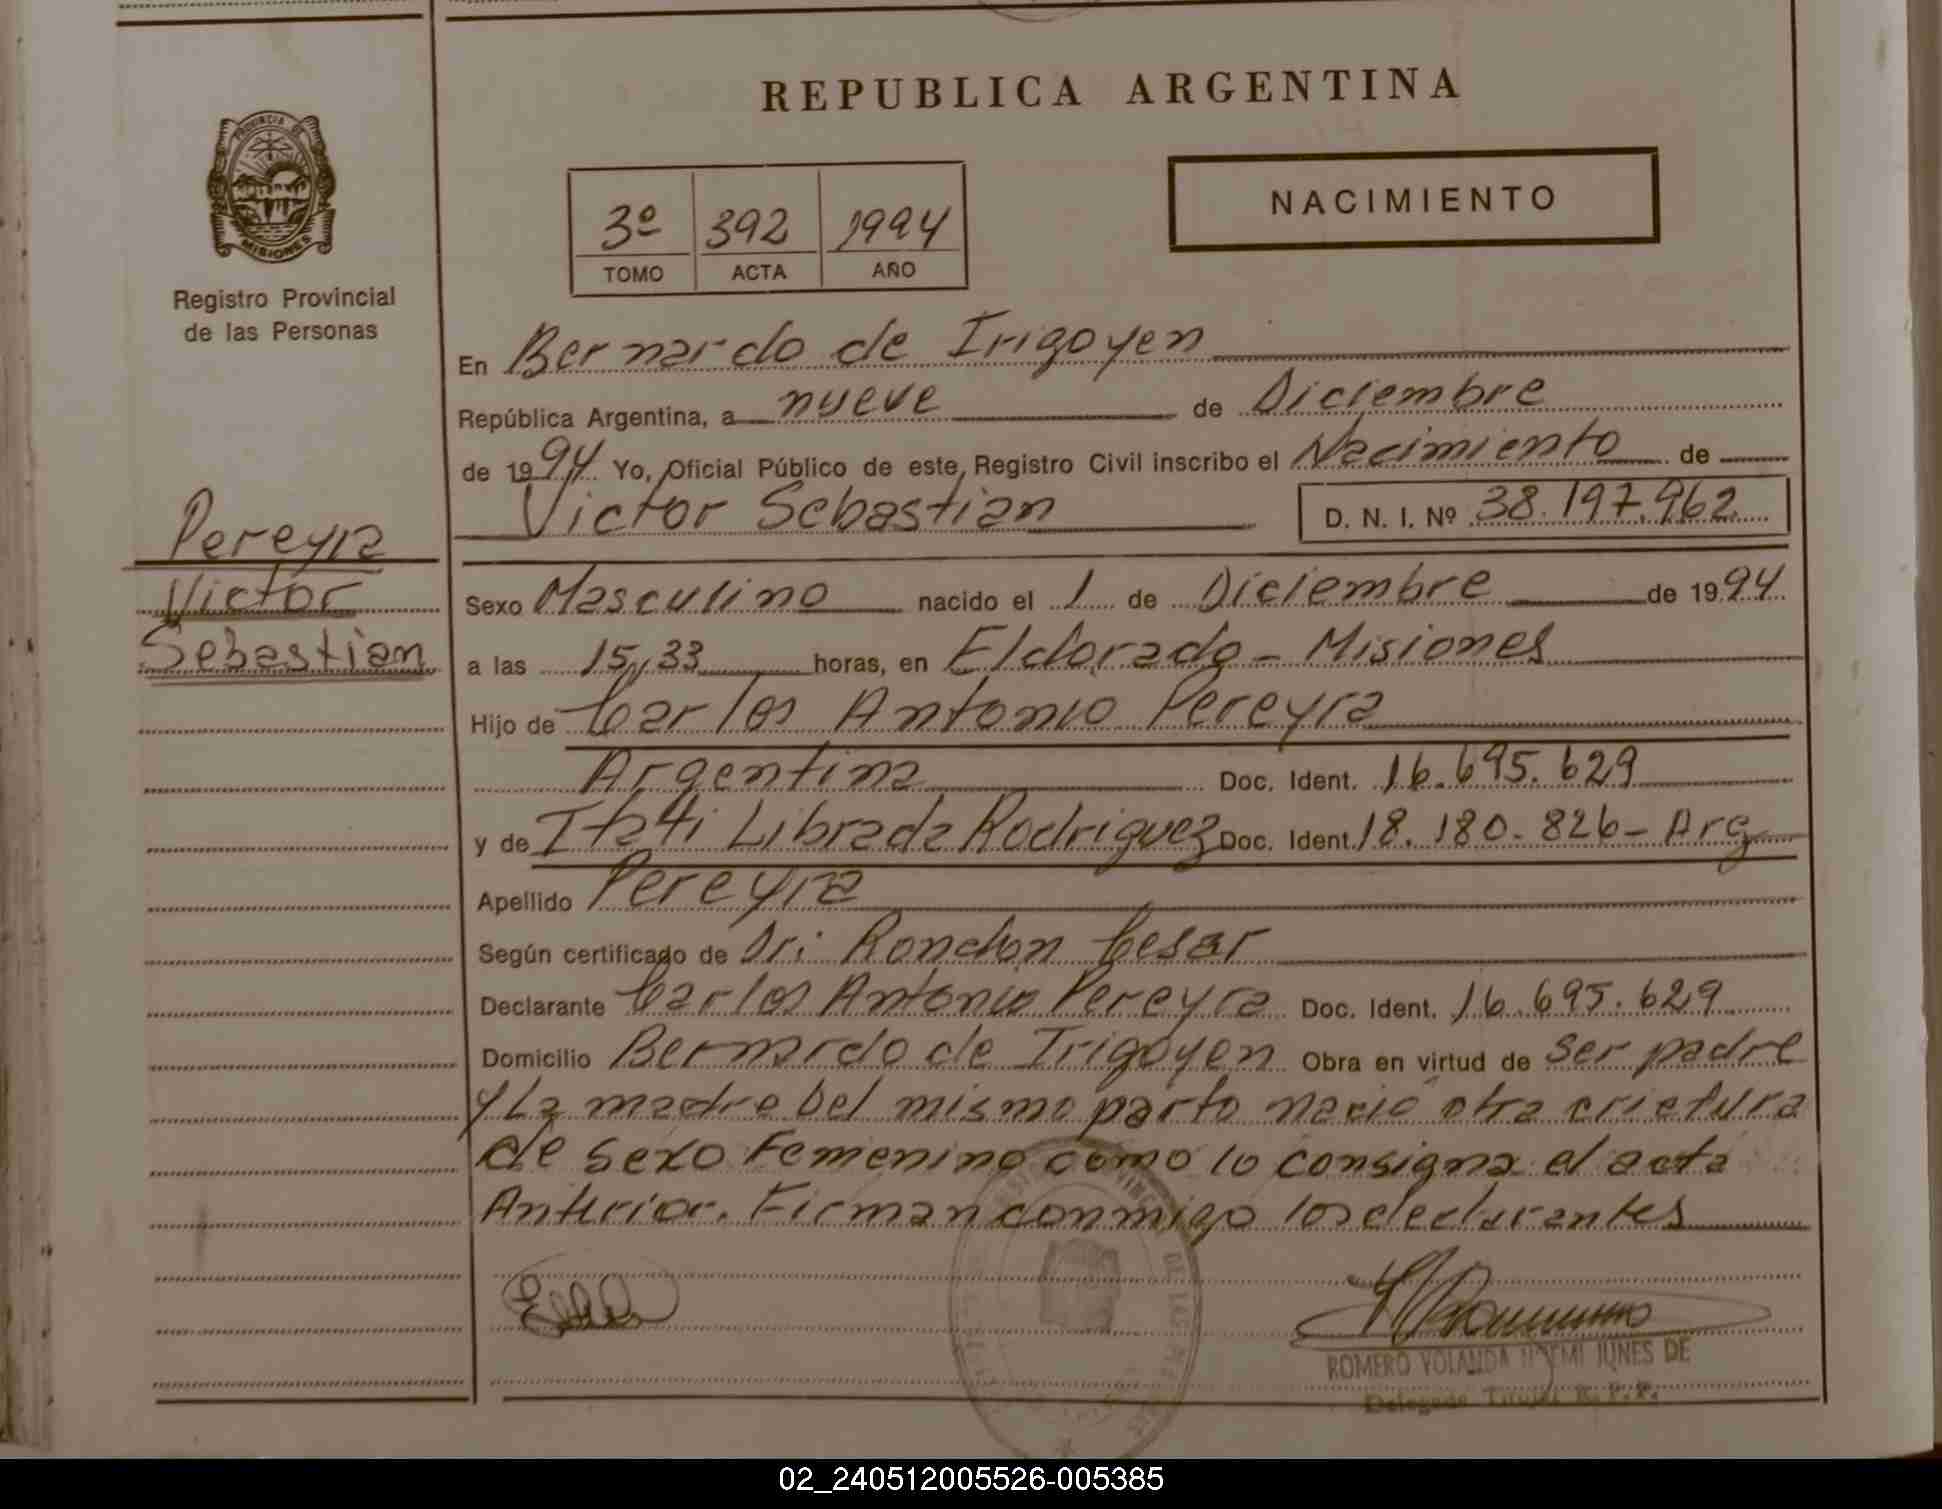 REPUBLICA ARGENTINA
PROVINCIA DE
MISIONES
Registro Provincial
de las Personas
3º 392 1994
TOMO ACTA AÑO
NACIMIENTO
En Bernardo de Irigoyen
República Argentina, a nueve de Diciembre
de 1994 Yo, Oficial Público de este Registro Civil inscribo el Nacimiento de
Victor Sebastian D. N. I. Nº 38.197.962
Pereyra
Victor
Sebastian
Sexo Masculino nacido el 1 de Diciembre de 1994
a las 15,,33 horas, en Eldorado - Misiones
Hijo de Carlos Antonio Pereyra
Argentina Doc. Ident. 16.695.629
y de Itati Librada Rodriguez Doc. Ident. 18.180.826- Arg
Apellido Pereyra
Según certificado de Dr: Rondon Cesar
Declarante Carlos Antonio Pereyra Doc. Ident. 16.695.629
Domicilio Bernardo de Irigoyen Obra en virtud de ser padre
y La madre Del mismo parto nació otra criatura
de sexo Femenino como lo consigna el acta
Anterior. Firman conmigo los declarantes
ROMERO YOLANDA NOEMI JUNES DE
02_240512005526-005385